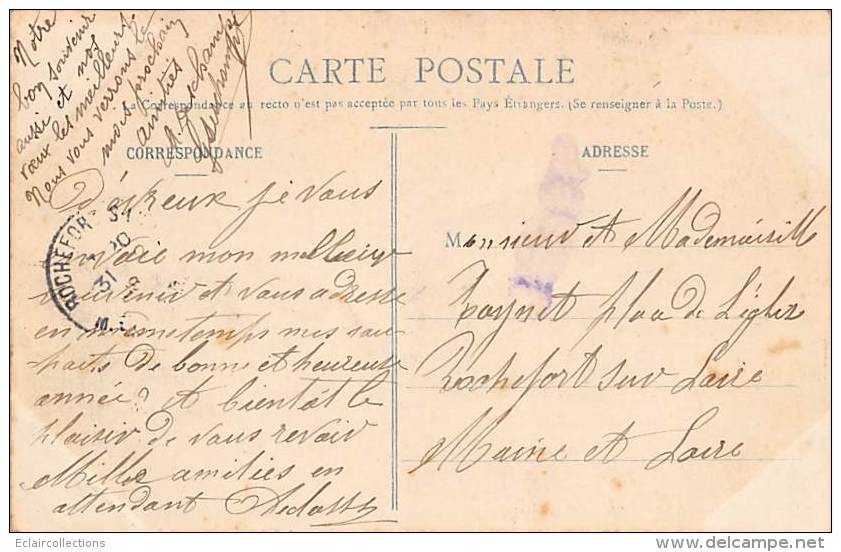 Notre
bon souvenir
aussi et nos
vœux les meilleurs
Nous vous verrons le
mois prochain
amitiés
CARTE POSTALE
La Correspondance au recto n'est pas acceptée par tous les Pays Étrangers. (Se renseigner à la Poste.)
CORRESPONDANCE
je vous
envoie mon meilleur
souvenir et vous adresse
en même temps mes sou
haits de bonne et heureuse
année et bientôt le
plaisir de vous revoir
Mille amitiés en
attendant
ROCHEFORT S/
20
31
ADRESSE
Monsieur et Mademoiselle
place de L'église
Rochefort sur Loire
Maine et Loire
Eclaircollections
www.delcampe.net